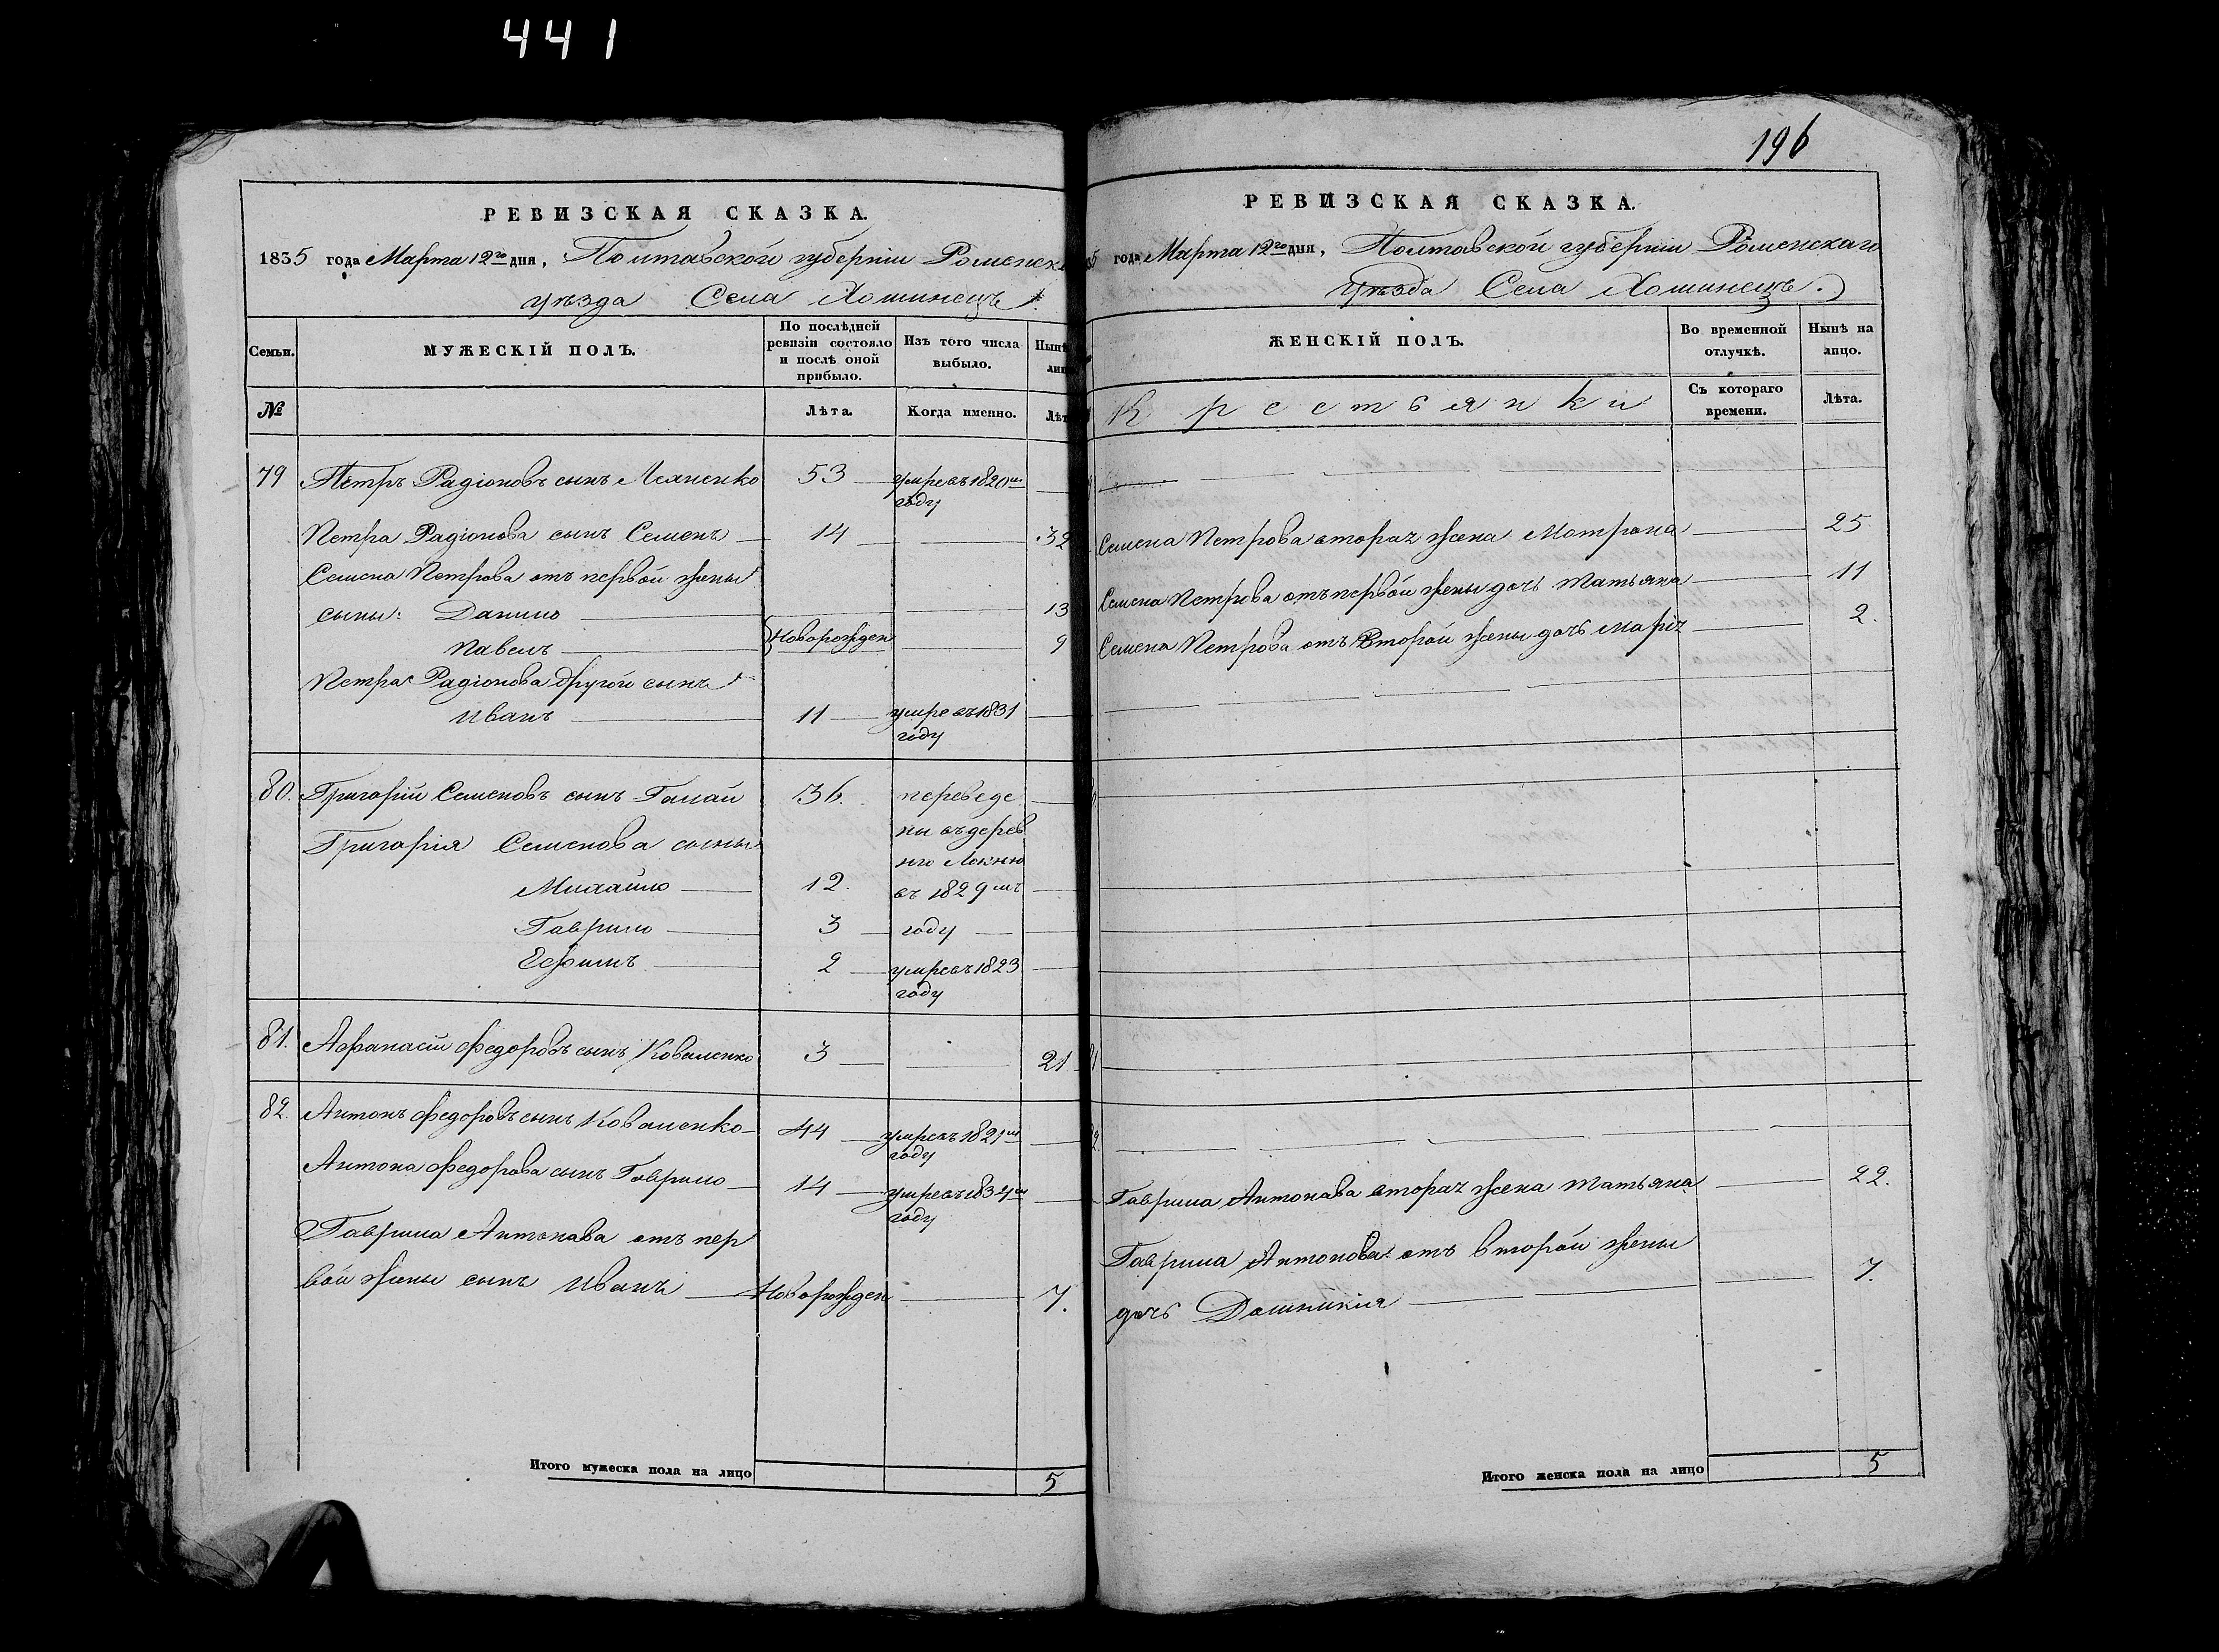 441
РЕВИЗСКАЯ СКАЗКА.
1835 года Марта 12го дня, Полтавской губернiи Роменск
уѣзда Села Хоминецъ
Семьи.
МУЖЕСКIЙ ПОЛЪ.
По послѣдней ревизiи состояло и послѣ оной прибыло.
Изъ того числа выбыло.
Нынѣ
№
Лѣта.
Когда именно.
79 Петръ Радiоновъ сынъ 53 умре въ 1820м
году
Петра Радiонова сынъ Семенъ 14 32
Семена Петрова отъ первой жены
сыны: Данило 13
Павелъ Новорожден 9
Петра Радiонова другой сынъ
Иванъ 11 умре въ 1831
году
80. Григорiй Семеновъ сынъ Галай 36. переведе
Григорiя Семенова сыны ны въ дерев
ню Локню
Михайло 12. въ 1829мъ
Гаврило 3 году
Ефимъ 2 умре въ 1823
году
81. Афанасiй Федоровъ сынъ Коваленко 3 21
82. Антонъ Федоровъ сынъ Коваленко 44 умре въ 1821м
году
Антона Федорова сынъ Гаврило 14 умре въ 1834м
году
Гаврила Антонава отъ пер
вой жены сынъ Иванъ Новорожден 7.
Итого мужеска пола на лицо 5
196
РЕВИЗСКАЯ СКАЗКА.
5 года Марта 12го дня, Полтавской губернiи Роменскаго
уѣзда Села Хоминецъ.
ЖЕНСКIЙ ПОЛЪ.
Во временной отлучкѣ.
Нынѣ на лицо.
Крестьянки
Съ котораго времени.
Лѣта.
Семена Петрова вторая жена Мотрона 25.
Семена Петрова отъ первой жены дочь Татьяна 11
Семена Петрова отъ Второй жены дочь Марiя 2.
Гаврила Антонава вторая жена Татьяна 22.
Гаврила Антонова отъ второй жены
дочь Домникiя 7.
Итого женска пола на лицо 5